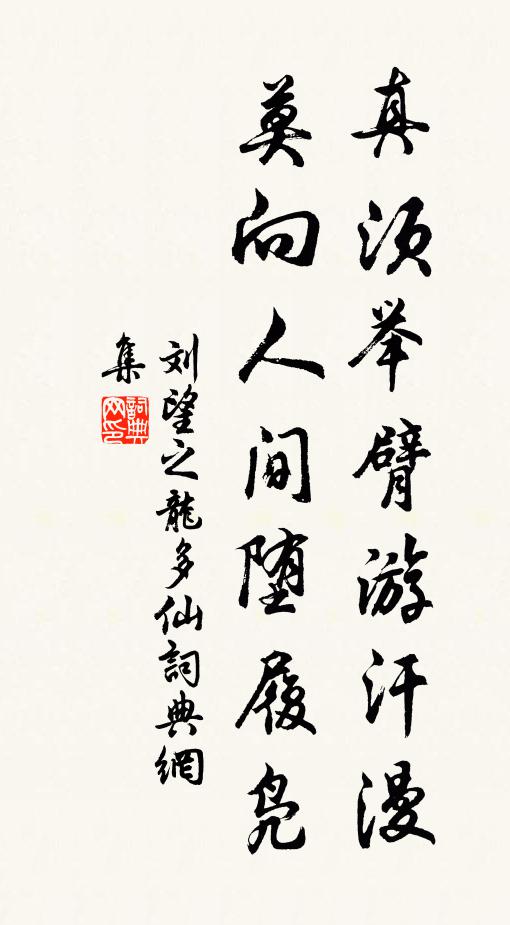 真须举臂游汗漫
莫向人间堕履凫
刘望之龍多仙詞典網
集
詞典网印